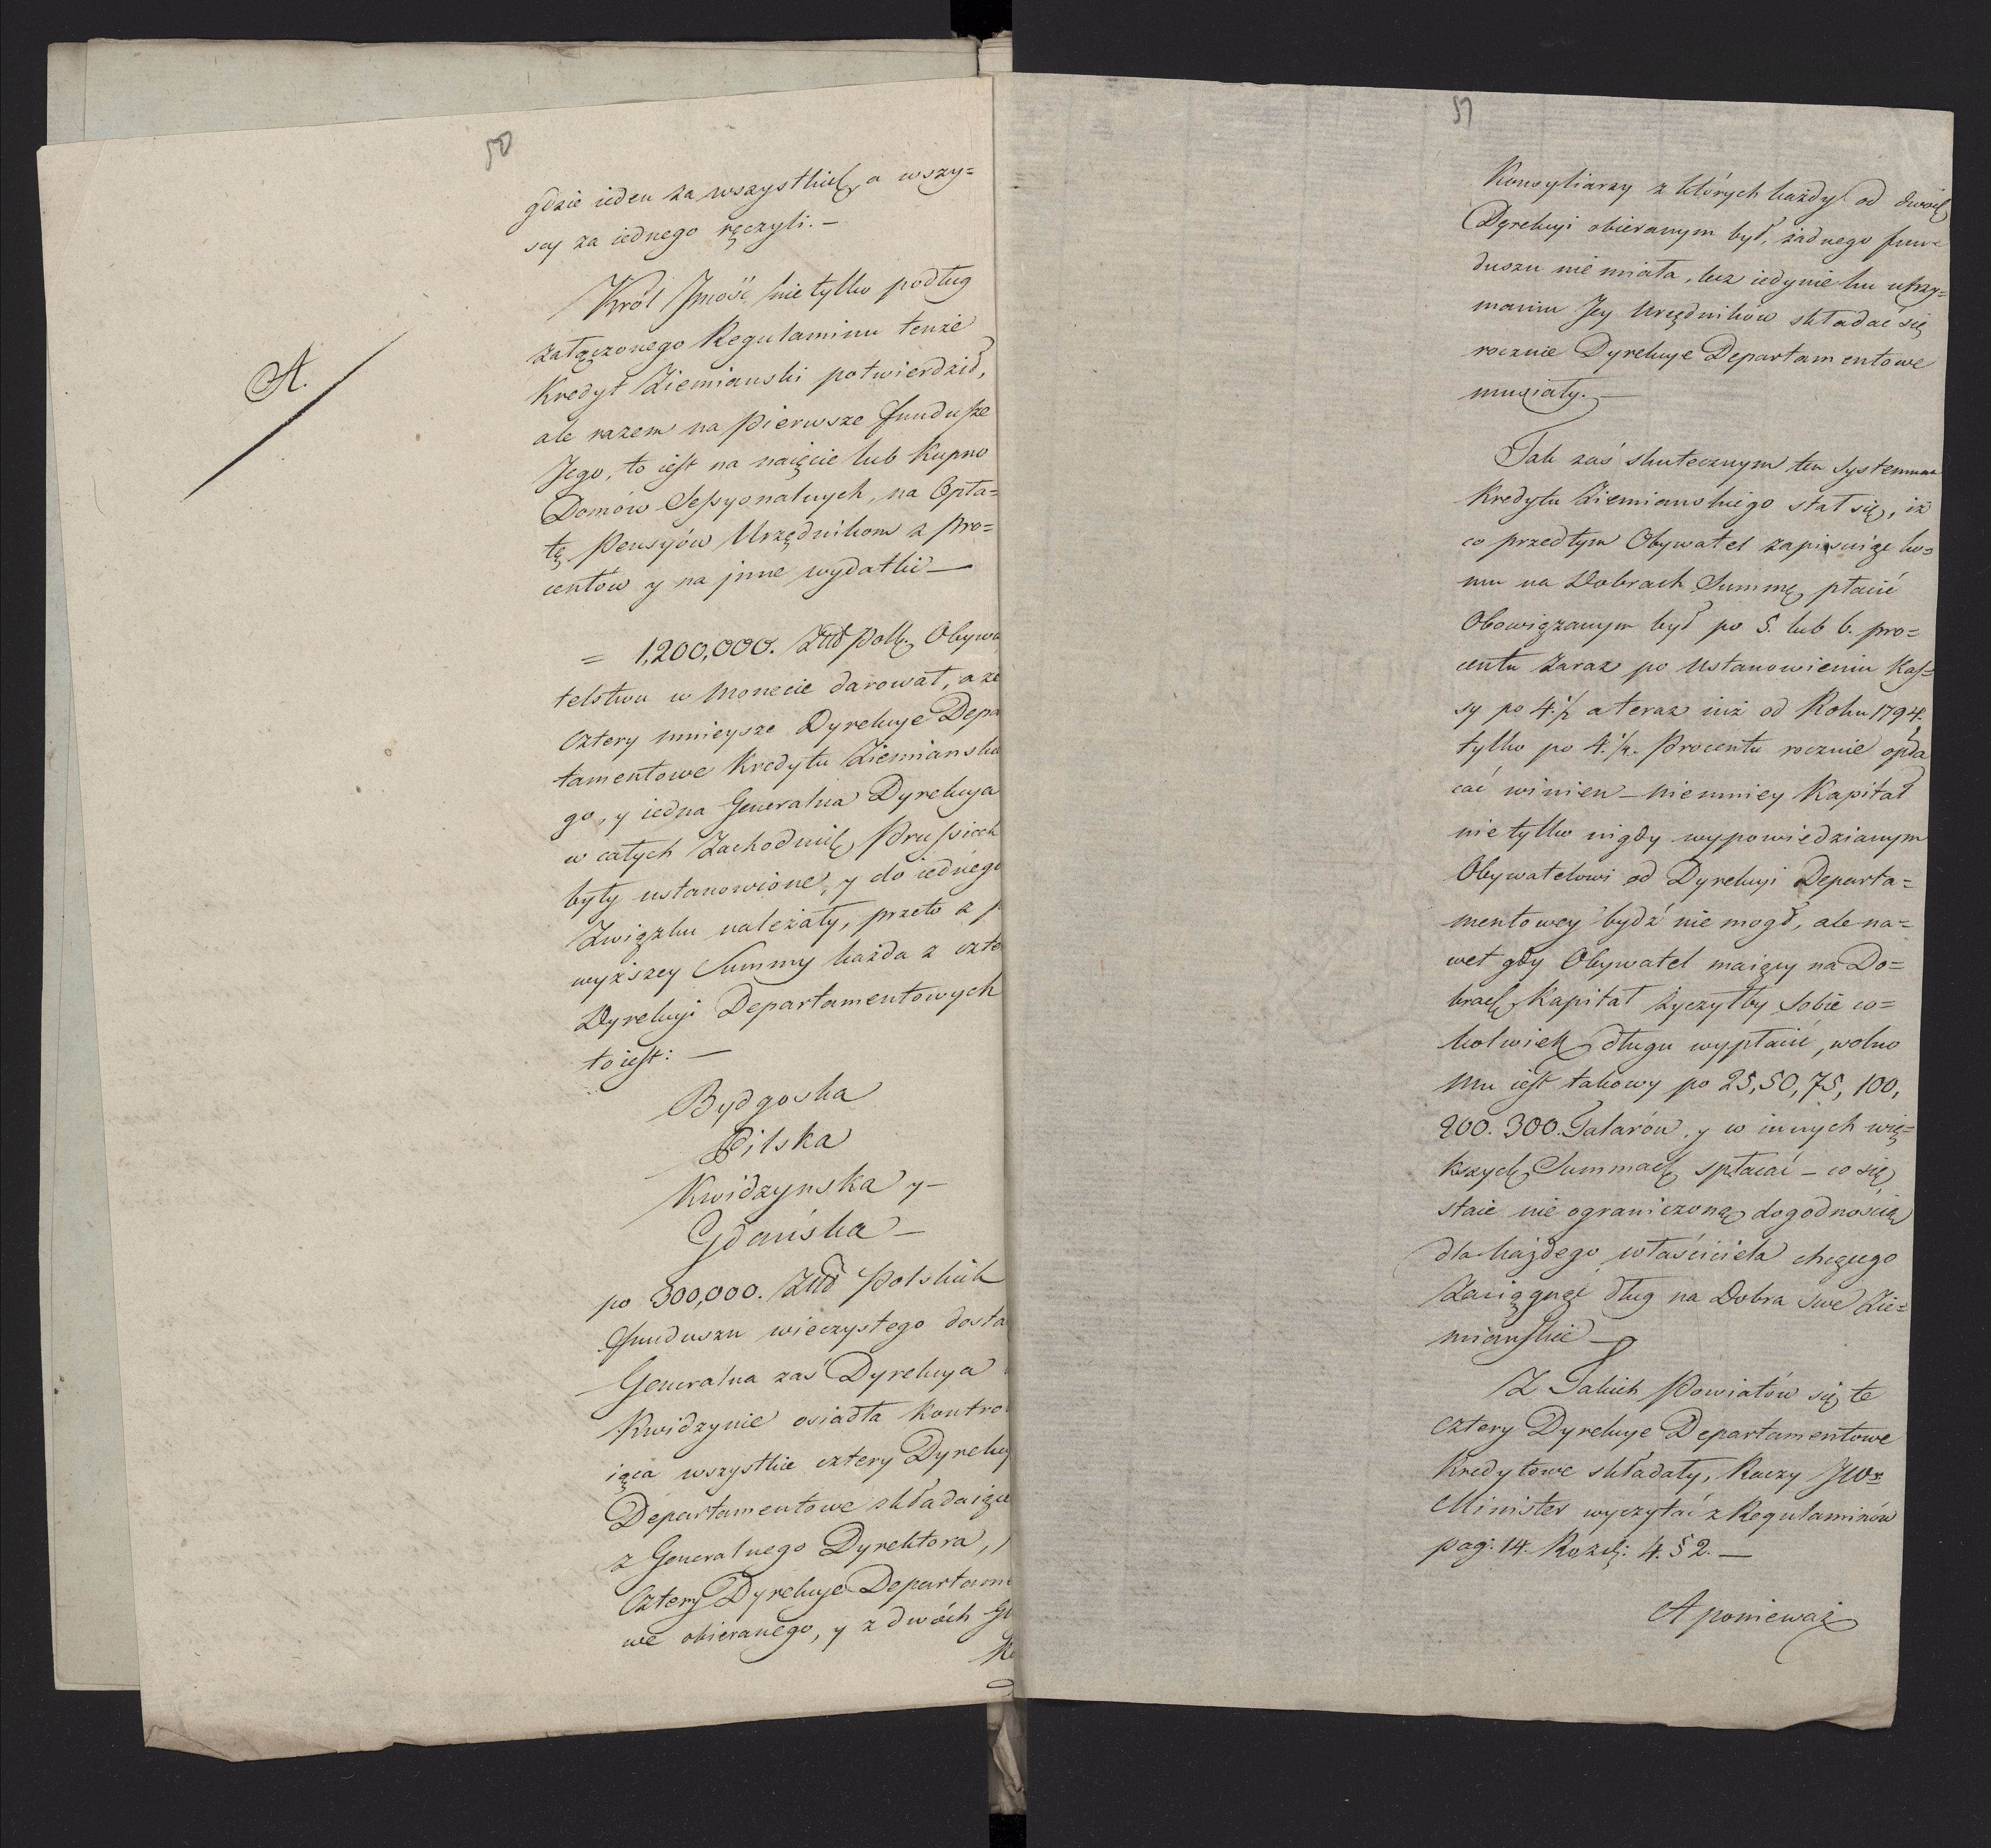 50
gdzie ieden za wszystkich, a wszy=
scy za iednego ręczyli. —
A.
Król Jmość nie tylko podług
załączonego Regulaminu tenże
Kredyt Ziemianski potwierdził,
ale razem na pierwsze fundusze
Jego, to iest na naięcie lub Kupno
Domów Sessyonalnych, na Opła=
tę Pensyów Urzędnikom z pro=
centów y na jnne wydatki —
= 1,200,000. Złł Polk. Obywa
telstwu w Monecie darował, a że
cztery mnieysze Dyrekcye Depa
tamentowe Kredytu Ziemiańskie
go, y iedna Generalna Dyrekcya
w całych Zachodnich Prussiach
były ustanowione, y do iednego
Związku należały, przeto z p
wyższey Summy każda z czte
Dyrekcyi Departamentowych
to iest: —
Bydgoska
Pilska
Kwidzynska y —
Gdańska —
po 300,000. Złł Polskich
funduszu wieczystego dosta
Generalna zaś Dyrekcya
Kwidzynie osiadła Kontro
iąca wszystkie cztery Dyrekcy
Departamentowe składaiąca
z Generalnego Dyrektora,
Cztery Dyrekcye Departame
we obieranego, y z dwóch G
K
51
Konsyliarzy z których każdy od dwóch
Dyrekcyi obieranym był, żadnego fun=
duszu nie miała, lecz iedynie ku utrzy=
maniu Jey Urzędników składać się
rocznie Dyrekcye Departamentowe
musiały. —
Tak zaś skutecznym ten Systemma
Kredytu Ziemianskiego stał się, iż
co przedtym Obywatel zapisuiąc ko=
mu na Dobrach Summę, płacić
Obowiązanym był po 5. lub 6. pro=
centu zaraz po ustanowieniu Kas=
sy po 4. ½ a teraz iuż od Roku 1794.
tylko po 4. ¼. Procentu rocznie opła
cać winien — niemniey Kapitał
nie tylko nigdy wypowiedzianym
Obywatelowi od Dyrekcyi Departa=
mentowey bydź nie mogł, ale na=
wet gdy Obywatel maiący na Do=
brach Kapitał życzyłby sobie co=
kolwiek długu wypłacić, wolno
Mu iest takowy po 25, 50, 75, 100,
200. 300. Talarów, y w innych wię=
kszych Summach spłacać — co się
staie nie ograniczoną dogodnością
dla każdego właściciela chcącego
Zaciągnąć dług na Dobra swe Zie=
mianskie —
Z Jakich Powiatów się te
cztery Dyrekcye Departamentowe
Kredytowe składały, Raczy JWy
Minister wyczytać z Regulaminów
pag: 14. Rozdz: 4. § 2. —
A ponieważ